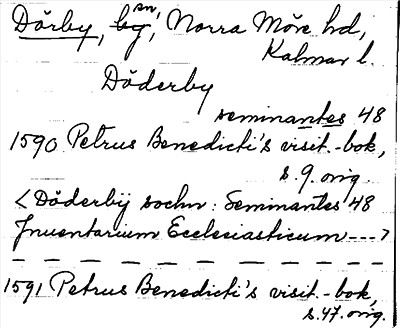 Dörby, by, sn, Norra Möre hd,
Kalmar l.
Döderby
seminantes 48
1590 Petrus Benedicti's visit.-bok,
s. 9. orig.
< Döderbÿ sochn: Seminantes 48
Jnuentarium Ecclesiasticum --->
1591 Petrus Benedicti's visit.-bok,
s. 47. orig.